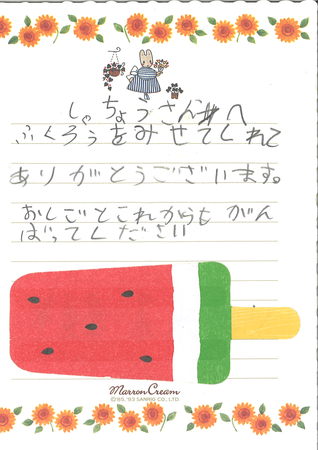 しゃちょうさんへ
ふくろうをみせてくれて
ありがとうございます。
おしごとこれからもがん
ばってください
Marron Cream
©'85,'93 SANRIO CO., LTD.